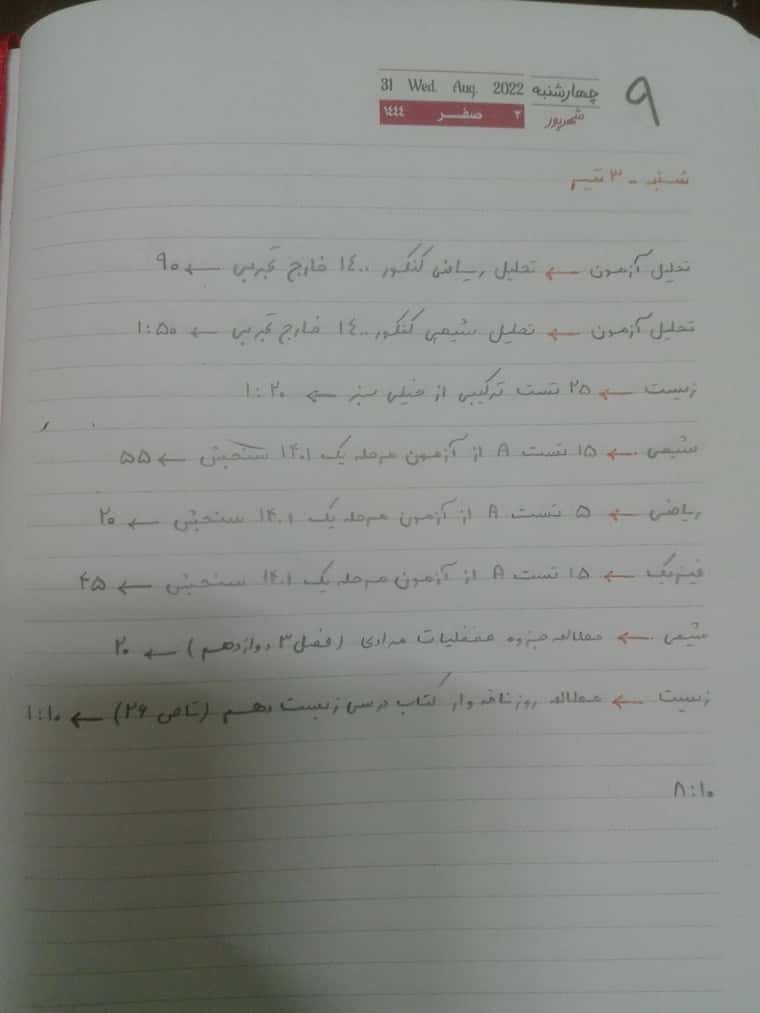 31 Wed. Aug. 2022 چهارشنبه ۹
۱۴۴۴ صفـر ۳ شهریور
شنبه - ۳ تیر
تحلیل آزمون ← تحلیل ریاضی کنکور ۱۴۰۰ خارج تجربی ← ۹۰
تحلیل آزمون ← تحلیل شیمی کنکور ۱۴۰۰ خارج تجربی ← ۱:۵۰
زیست ← ۲۵ تست ترکیبی از خیلی سبز ← ۱:۲۰
شیمی ← ۱۵ تست A از آزمون مرحله یک ۱۴۰۱ سنجش ← ۵۵
ریاضی ← ۵ تست A از آزمون مرحله یک ۱۴۰۱ سنجش ← ۲۰
فیزیک ← ۱۵ تست A از آزمون مرحله یک ۱۴۰۱ سنجش ← ۴۵
شیمی ← مطالعه جزوه حفظیات مرادی (فصل ۳ دوازدهم) ← ۲۰
زیست ← مطالعه روزنامه وار کتاب درسی زیست دهم (تا ص ۲۶) ← ۱:۱۰
۸:۱۰